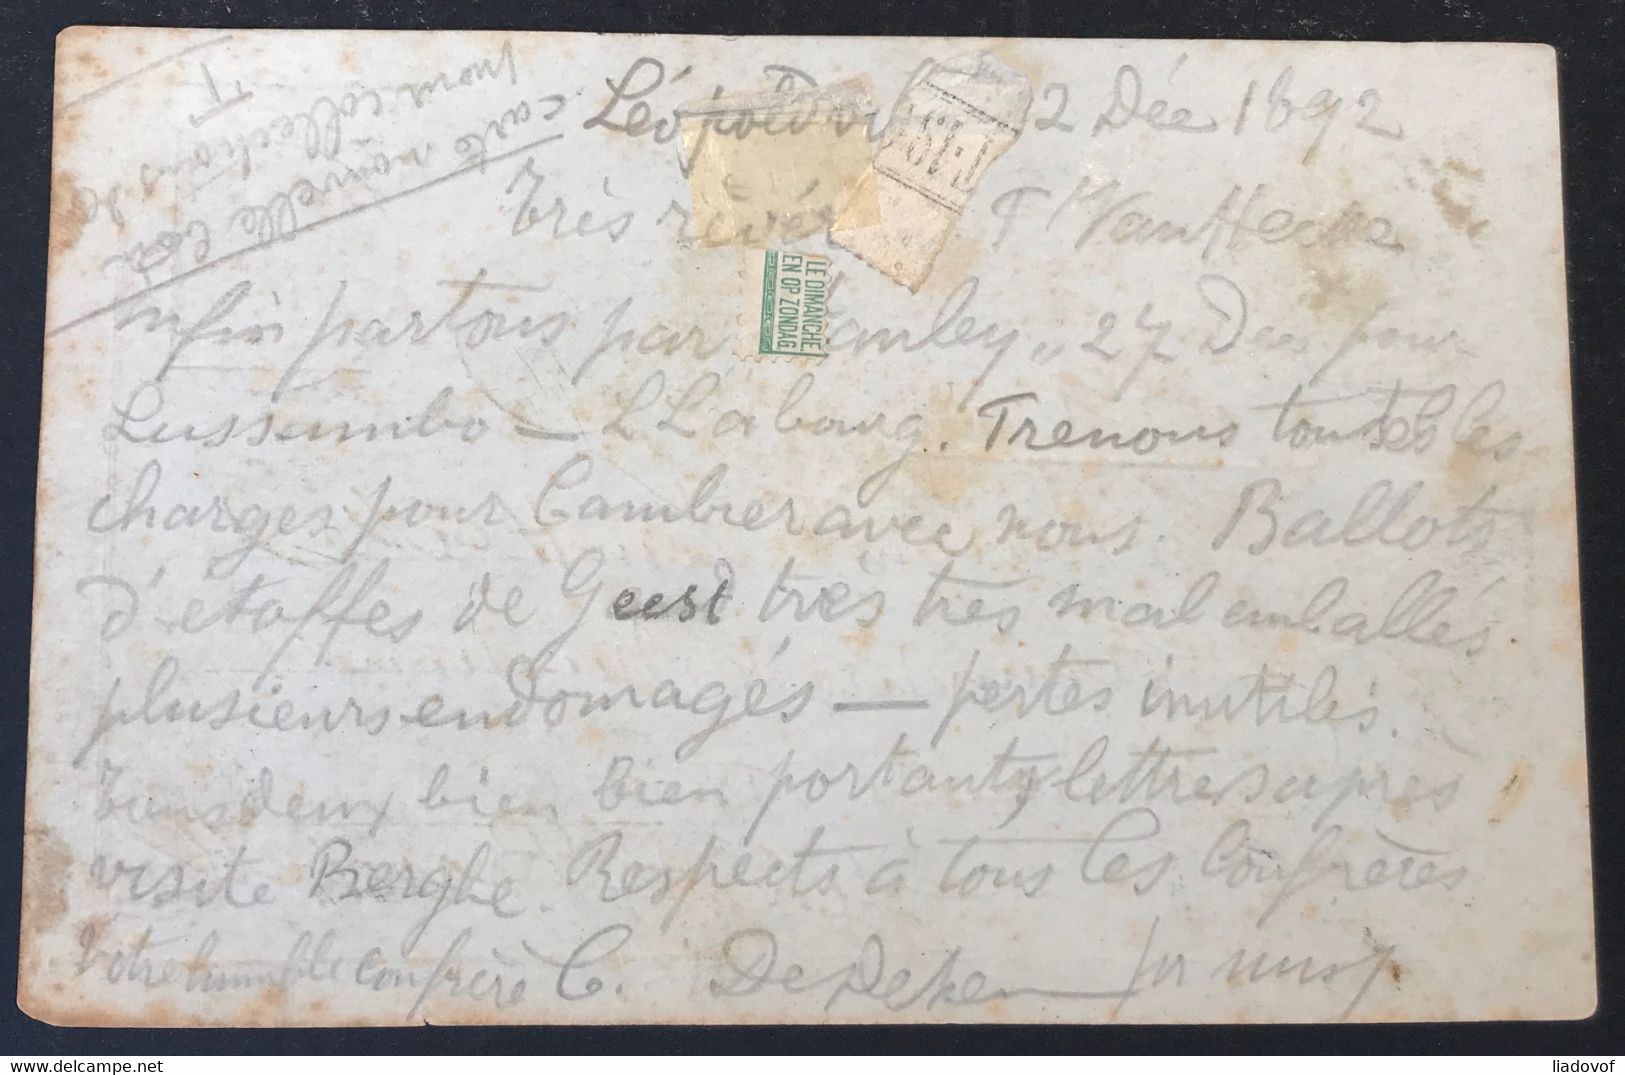 carte nouvelle
pour collections de
Léopoldvil 2 Déc 1892
Très révér F VanHecke
Enfin partons par Stanley, 27 Déc pour
Lussambo — Lábourg. Trenous toutes les
charges pour Cambier avec nous. Ballots
d'étoffes de Geest très très mal emballés.
plusieurs endomagés — pertes inutiles.
Tous deux bien bien portants, lettres après
visite Berghe. Respects à tous les Confrères
Votre humble confrère C. De Deken
LE DIMANCHE
EN OP ZONDAG
www.delcampe.net
liadovof